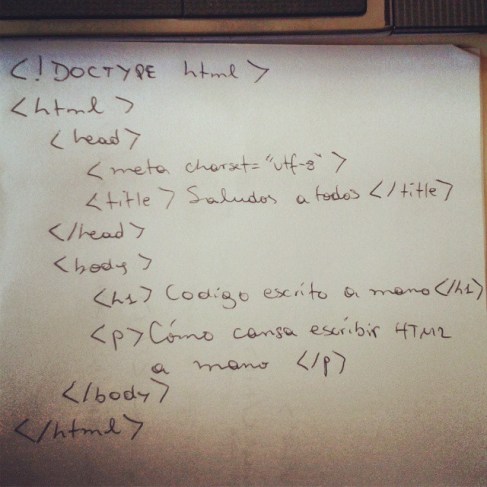 <!DOCTYPE html>
<html>
<head>
<meta charset="utf-8">
<title>Saludos a todos</title>
</head>
<body>
<h1>Codigo escrito a mano</h1>
<p>Cómo cansa escribir HTML
a mano </p>
</body>
</html>